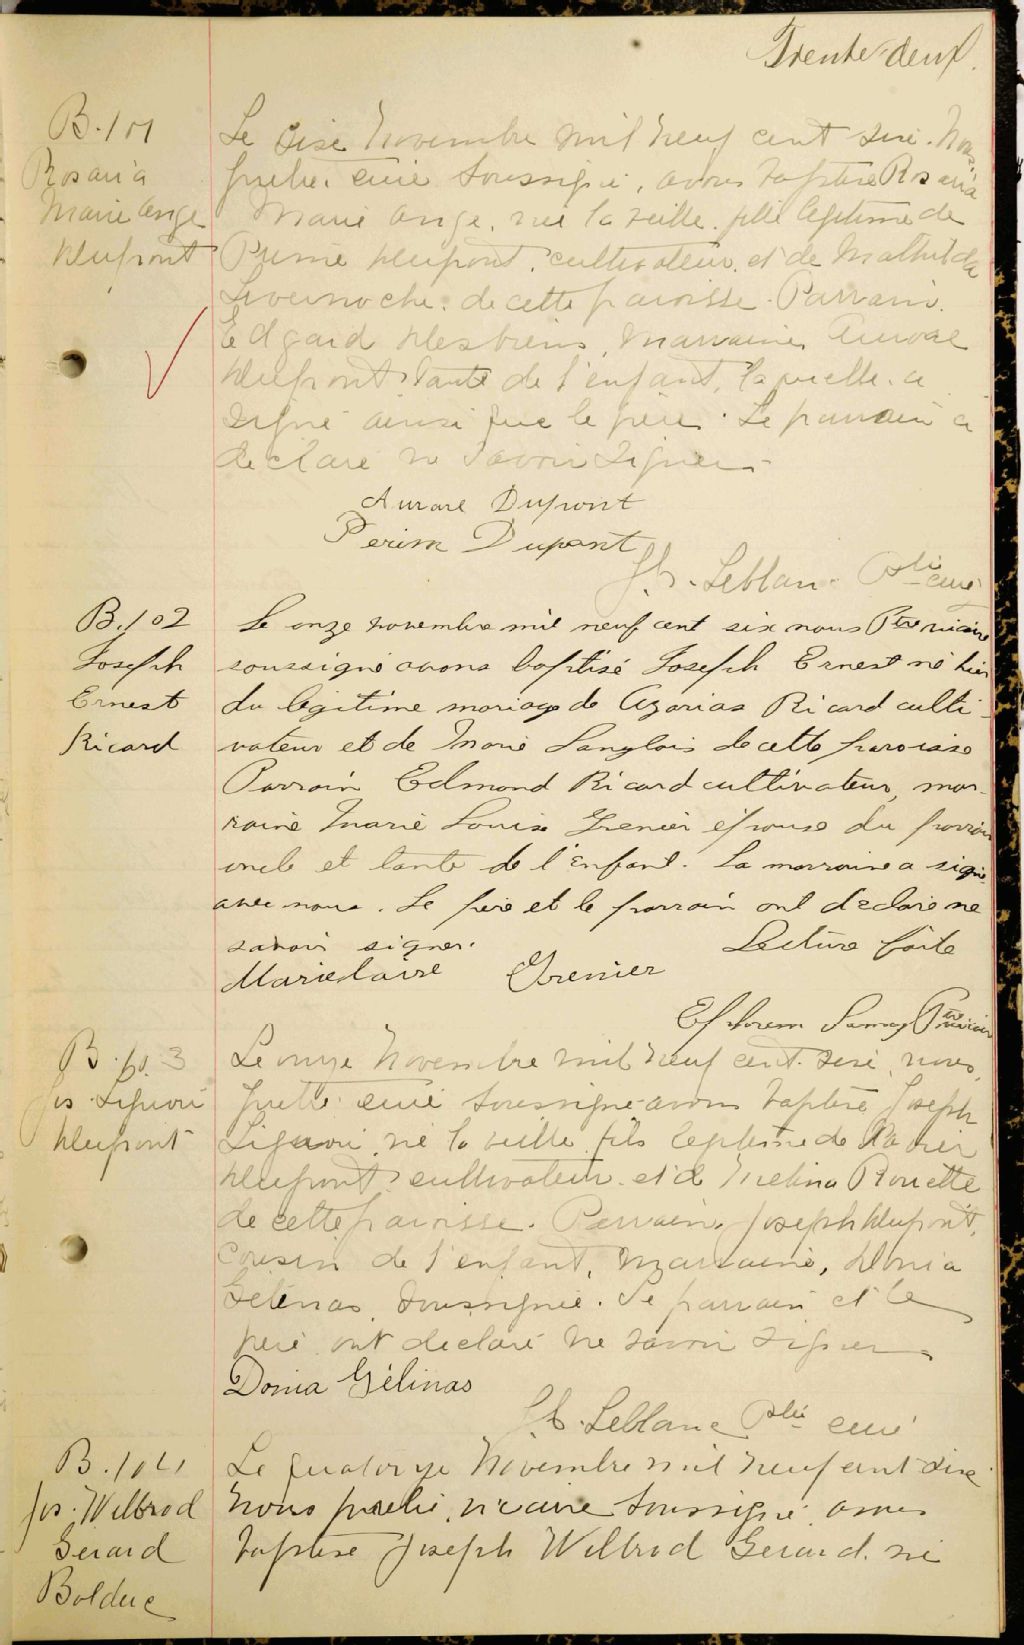 Trente-deux.
B.101
Rosaria
Marie Ange
Dupont
Le dix Novembre mil neuf cent six. Nous,
prêtre, curé soussigné, avons baptisé Rosaria
Marie Ange, née la veille, fille légitime de
Prime Dupont, cultivateur, et de Mathilde
Livernoche, de cette paroisse. Parrain,
Edgard Desbiens, marraine, Aurore
Dupont tante de l'enfant, laquelle a
signé ainsi que le père. Le parrain a
déclaré ne savoir signer.
Aurore Dupont
Perim Dupont
J. B. Leblanc Ptre curé
B.102
Joseph
Ernest
Ricard
Le onze novembre mil neuf cent six nous Ptre vicaire
soussigné avons baptisé Joseph Ernest né hier
du légitime mariage de Azarias Ricard culti-
vateur et de Marie Langlois de cette paroisse
Parrain Edmond Ricard cultivateur, mar-
raine Marie Louise Grenier épouse du parrain
oncle et tante de l'enfant. La marraine a signé
avec nous. Le père et le parrain ont déclaré ne
savoir signer. Lecture faite
Grenier
Ephrem Ptre vicaire
B.103
Jos. Liguori
Dupont
Le onze Novembre mil neuf cent six, nous,
prêtre curé soussigné avons baptisé Joseph
Liguori, né la veille, fils légitime de
Dupont, cultivateur et de Mélina Rouette
de cette paroisse. Parrain, Joseph Dupont,
cousin de l'enfant, marraine, Donia
Gélinas, soussignée. Le parrain et le
père ont déclaré ne savoir signer.
Donia Gélinas
J. B. Leblanc Ptre curé
B.104
Jos. Wilbrod
Gérard
Bolduc
Le quatorze Novembre mil neuf cent six
Nous prêtre, vicaire soussigné avons
baptisé Joseph Wilbrod Gérard, né